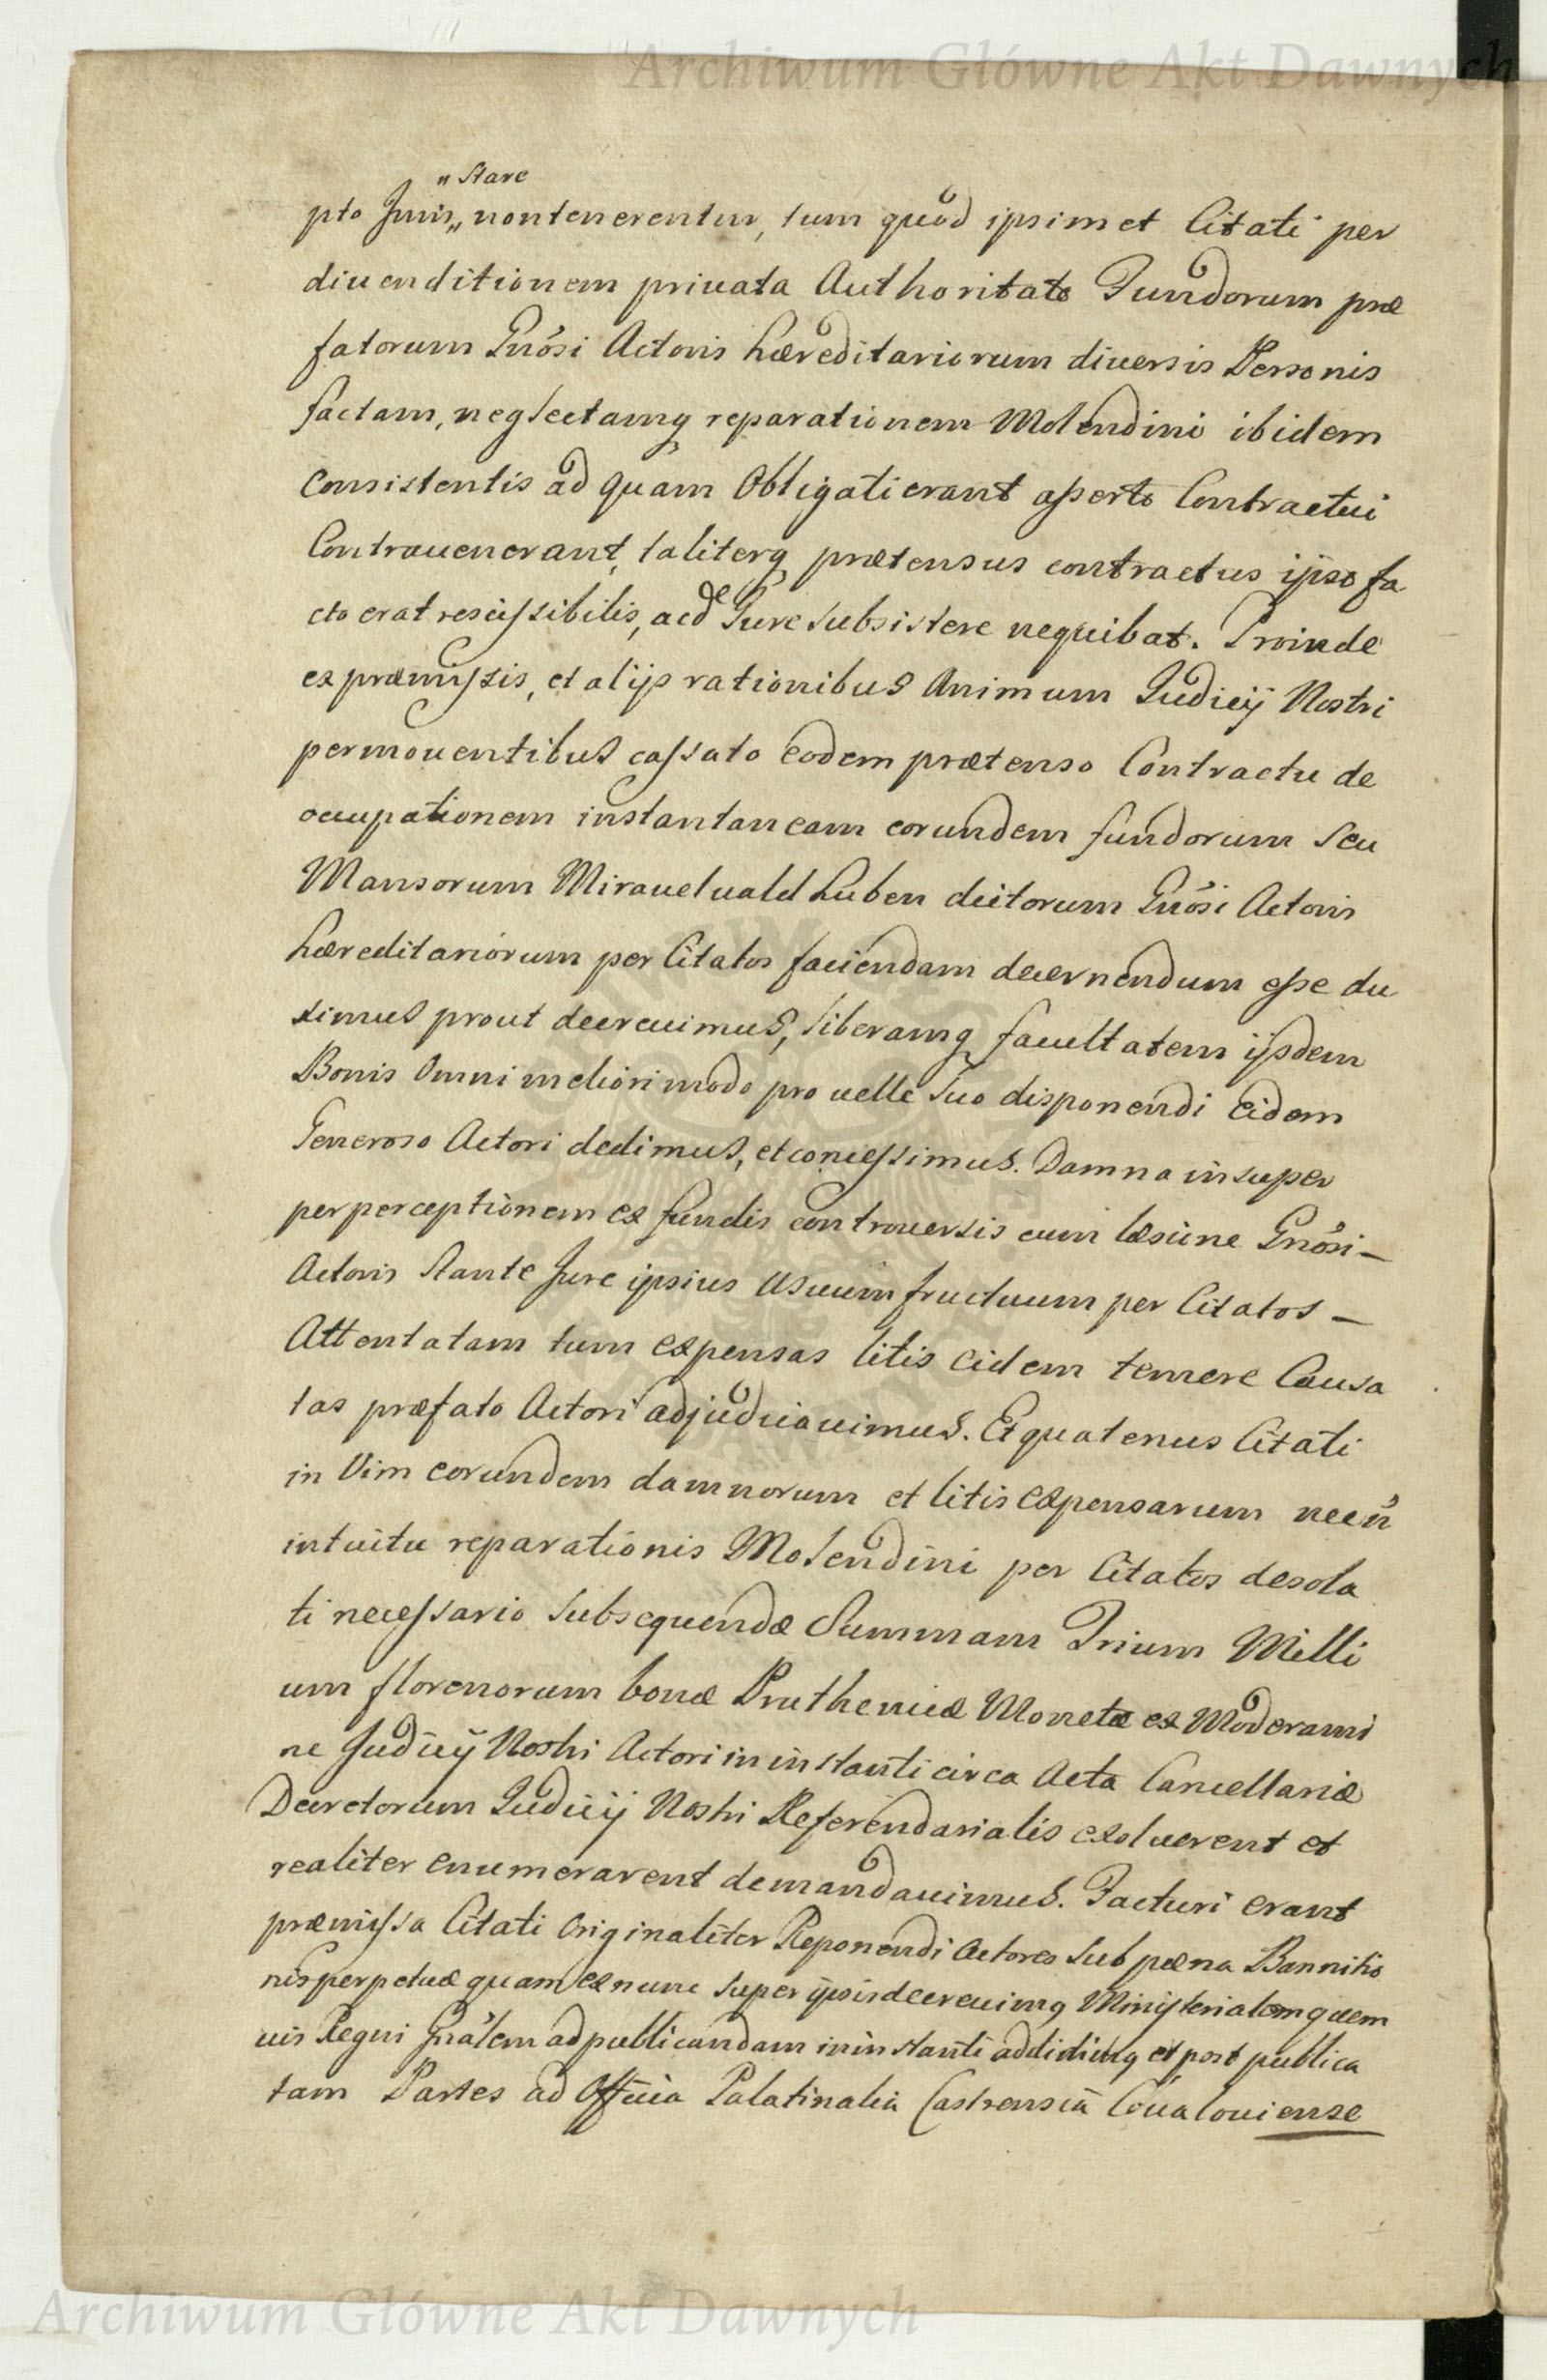 Archiwum Główne Akt Dawnych
„ Stare
pto Juris „ non tenerentur, tum quod ipsimet Citati per
diuenditionem priuata Authoritate Fundorum præ
fatorum Gnõsi Actoris hæreditariorum diuersis Personis
factam, neglectamq reparationem Molendini ibidem
consistentis ad quam Obligati erant asserto Contractui
Contrauenerant, taliterq prætensus contractus ipso fa
cto erat rescissibilis, ac de Jure subsistere nequibat. Proinde
ex præmissis, et alijs rationibus Animum Judicij Nostri
permouentibus cassato eodem prætenso Contractu de
occupationem instantaneam eorundem fundorum seu
Mansorum Mirauelwald huben dictorum Gnõsi Actoris
hæreditariorum per Citatos faciendam decernendum esse du
ximus prout decreuimus, liberamq facultatem ijsdem
Bonis Omni meliori modo pro uelle suo disponendi Eidem
Generoso Actori dedimus, et concessimus. Damna insuper
per perceptionem ex fundis controuersis cum læsione Gnõsi –
Actoris stante Jure ipsius Usuum fructuum per Citatos –
Attentatam tum expensas litis eidem temere Causa
tas præfato Actori adjudicauimus. Et quatenus Citati
in Vim eorundem damnorum et litis expensarum necñ
intuitu reparationis Molendini per Citatos desola
ti necessario subsequendæ Summam Trium Milli
um florenorum bonæ Pruthenicæ Monetæ ex Moderami
ne Judicij Nostri Actori in instanti circa Acta Cancellariæ
Decretorum Judicij Nostri Referendarialis exoluerent et
realiter enumerarent demandauimus. Facturi erant
præmissa Citati Originaliter Reponendi Actores sub pæna Bannitio
nis perpetuæ quam ex nunc super ipsis decreuimq Ministerialem quem
uis Regni Gnãlem ad publicandam in instanti addidimq et post publica
tam Partes ad Officia Palatinalia Castrensia Coualouiense
Archiwum Główne Akt Dawnych